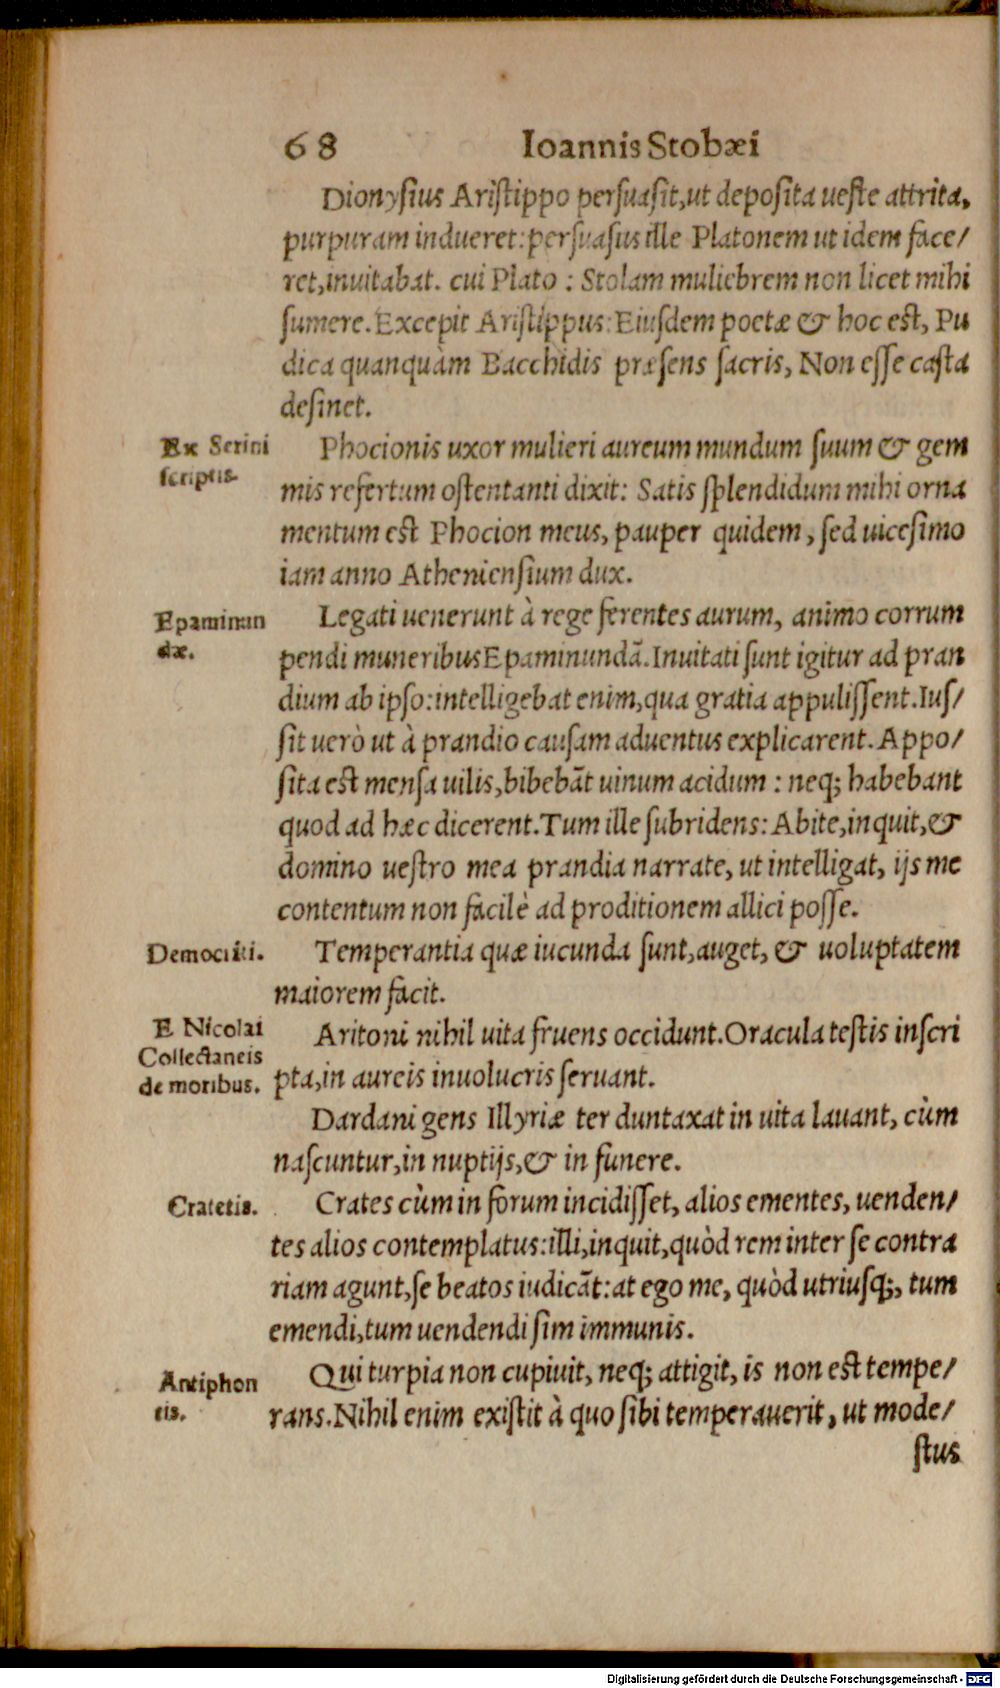 68 Ioannis Stobæi
Dionysius Aristippo persuasit,ut deposita ueste attrita,
purpuram indueret:persuasus ille Platonem ut idem face/
ret,inuitabat. cui Plato : Stolam muliebrem non licet mihi
sumere.Excepit Aristippus:Eiusdem poetæ & hoc est, Pu
dica quanquàm Bacchidis præsens sacris, Non esse casta
desinet.
Ex Serini
scriptis.
Phocionis uxor mulieri aureum mundum suum & gem
mis refertum ostentanti dixit: Satis splendidum mihi orna
mentum est Phocion meus, pauper quidem, sed uicesimo
iam anno Atheniensium dux.
Epaminun
dæ.
Legati uenerunt à rege ferentes aurum, animo corrum
pendi muneribus Epaminundā.Inuitati sunt igitur ad pran
dium ab ipso:intelligebat enim,qua gratia appulissent.Ius/
sit uerò ut à prandio causam aduentus explicarent. Appo/
sita est mensa uilis,bibebāt uinum acidum : neq; habebant
quod ad hæc dicerent.Tum ille subridens: Abite,inquit,&
domino uestro mea prandia narrate, ut intelligat, ijs me
contentum non facilè ad proditionem allici posse.
Democriti.
Temperantia quæ iucunda sunt,auget, & uoluptatem
maiorem facit.
E Nicolai
Collectaneis
de moribus.
Aritoni nihil uita fruens occidunt.Oracula testis inscri
pta,in aureis inuolucris seruant.
Dardani gens Illyriæ ter duntaxat in uita lauant, cùm
nascuntur,in nuptijs,& in funere.
Cratetis.
Crates cùm in forum incidisset, alios ementes, uenden/
tes alios contemplatus:illi,inquit,quòd rem inter se contra
riam agunt,se beatos iudicāt:at ego me, quòd utriusq;, tum
emendi,tum uendendi sim immunis.
Antiphon
tis.
Qui turpia non cupiuit, neq; attigit, is non est tempe/
rans.Nihil enim existit à quo sibi temperauerit, ut mode/
stus
Digitalisierung gefördert durch die Deutsche Forschungsgemeinschaft - DFG